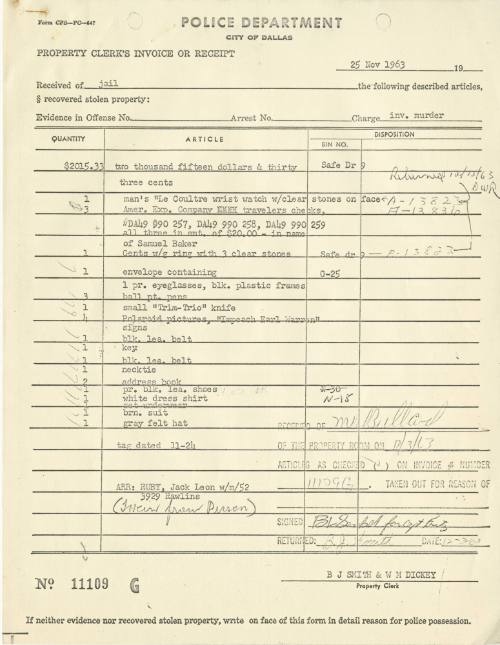 Form CPD-PC-447
POLICE DEPARTMENT
CITY OF DALLAS
PROPERTY CLERK'S INVOICE OR RECEIPT
25 Nov 1963 19
Received of jail the following described articles,
§ recovered stolen property:
Evidence in Offense No. Arrest No. Charge inv. murder
QUANTITY ARTICLE DISPOSITION
BIN NO.
$2015.33 two thousand fifteen dollars & thirty Safe Dr 9
three cents
Returned 12/13/63
1 man's "Le Coultre wrist watch w/clear stones on face A-13823
3 Amer. Exp. Company travelers checks,
#DA49 990 257, DA49 990 258, DA49 990 259
all three in amt. of $20.00 - in name
of Samuel Baker
1 Gents w/g ring with 3 clear stones Safe dr 9 A-13823
1 envelope containing 0-25
1 pr. eyeglasses, blk. plastic frames
3 ball pt. pens
1 small "Trim-Trio" knife
4 Polaroid pictures, "Impeach Earl Warren"
signs
1 blk. lea. belt
1 key
1 blk. lea. belt
1 necktie
2 address book
1 pr. blk. lea. shoes N-30
1 white dress shirt N-18
1 set underwear
1 brn. suit
1 gray felt hat
RECEIVED OF Mr Bullard
tag dated 11-24
OF THE PROPERTY ROOM ON
ARTICLES AS CHECKED (✓) ON INVOICE # NUMBER
11109G. TAKEN OUT FOR REASON OF
ARR: RUBY, Jack Leon w/m/52
3929 Rawlins
(From Person)
SIGNED
RETURNED: DATE:
B J SMITH & W M DICKEY
Property Clerk
No 11109 G
If neither evidence nor recovered stolen property, write on face of this form in detail reason for police possession.